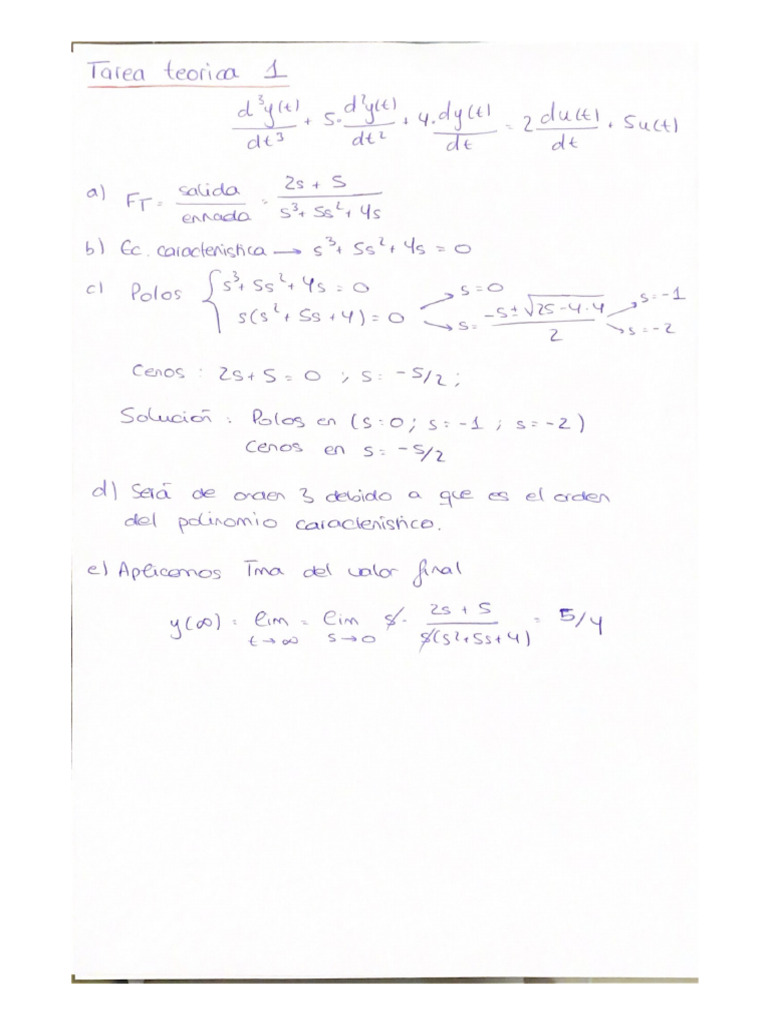 Tarea teorica 1
d³y(t)/dt³ + 5·d²y(t)/dt² + 4·dy(t)/dt = 2 du(t)/dt + 5u(t)
a) FT = salida/entrada = 2s + 5/s³ + 5s² + 4s
b) Ec. caracteristica → s³ + 5s² + 4s = 0
c) Polos { s³ + 5s² + 4s = 0
s(s² + 5s + 4) = 0 → s = 0 → s = -5 ± √25 - 4·4/2 → s = -1 → s = -2
Ceros : 2s + 5 = 0 ; s = -5/2 ;
Solución : Polos en (s=0 ; s = -1 ; s = -2)
Ceros en s = -5/2
d) Será de orden 3 debido a que es el orden
del polinomio característico.
e) Aplicamos Tma del valor final
y(∞) = lim t→∞ = lim s→0 s · 2s + 5/s(s² + 5s + 4) = 5/4